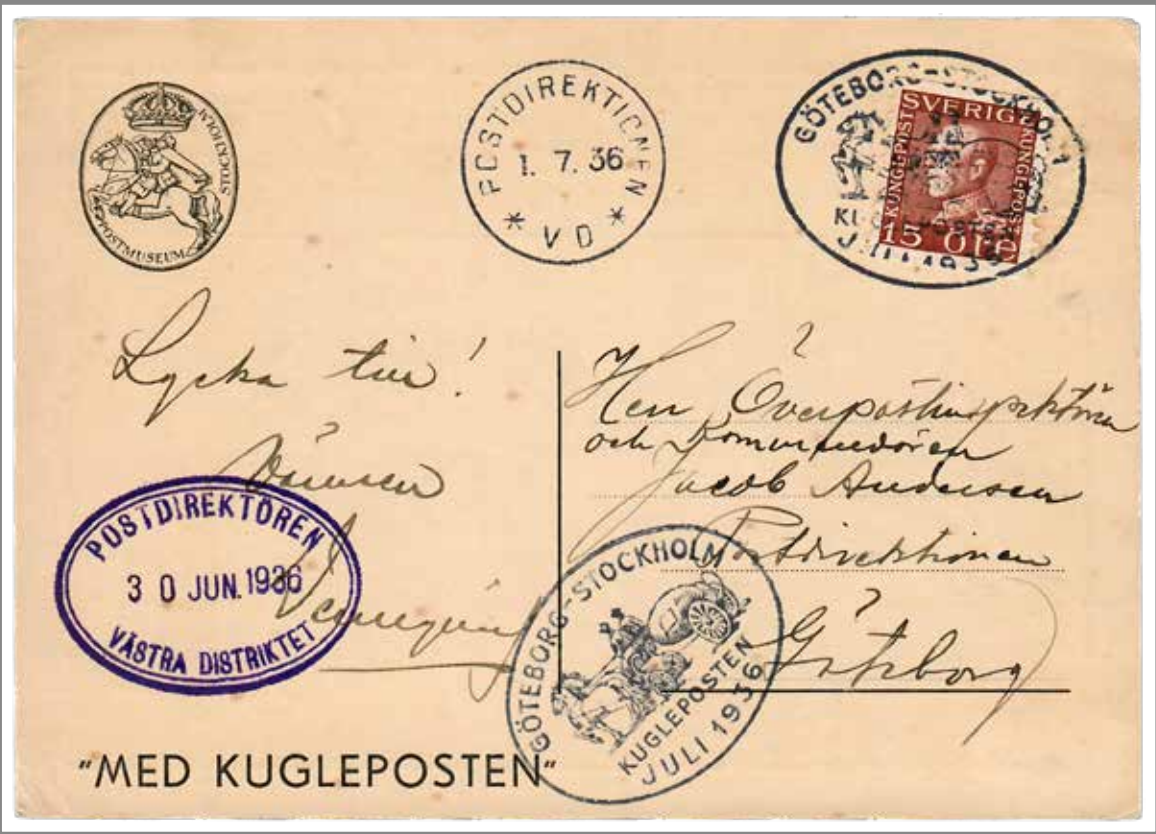 STOCKHOLM
POSTMUSEUM
POSTDIREKTIONEN
1. 7. 36
* VD *
GÖTEBORG-STOCKHOLM
KUGLEPOSTEN
JULI 1936
SVERIGE
KUNGLEPOST
KUNGLEPOST
15 ÖRE
Lycka till!
Vännen
POSTDIREKTÖREN
30 JUN. 1936
VÄSTRA DISTRIKTET
Herr Överpostinspektören
och Kommendören
Jacob Andersen
Postdirektionen
Göteborg
GÖTEBORG-STOCKHOLM
KUGLEPOSTEN
JULI 1936
"MED KUGLEPOSTEN"